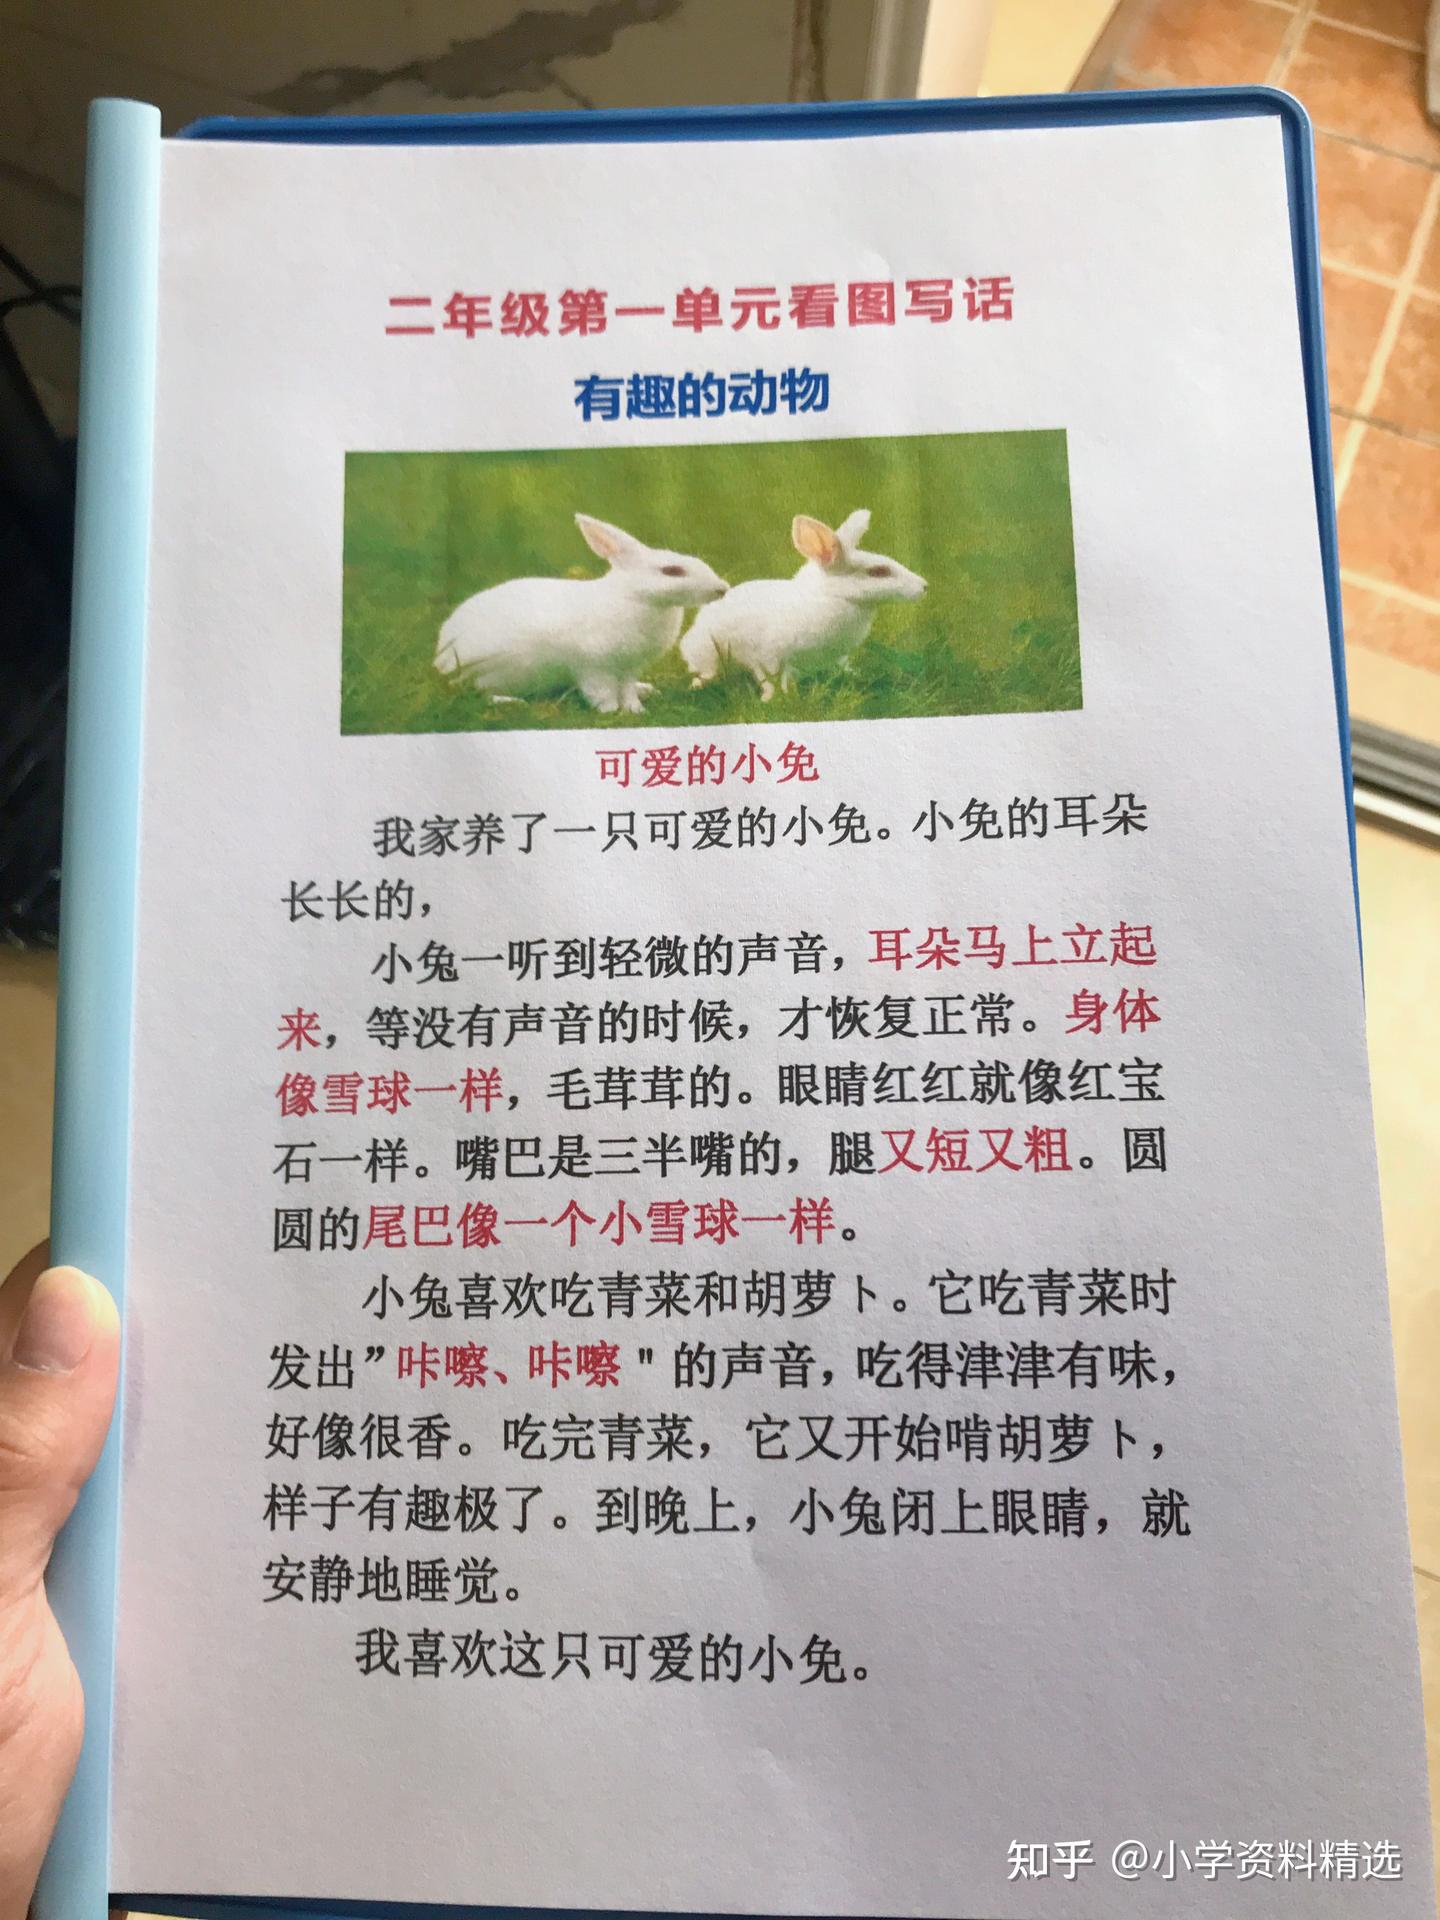 二年级第一单元看图写话
有趣的动物
可爱的小免
我家养了一只可爱的小免。小免的耳朵
长长的，
小兔一听到轻微的声音，耳朵马上立起
来，等没有声音的时候，才恢复正常。身体
像雪球一样，毛茸茸的。眼睛红红就像红宝
石一样。嘴巴是三半嘴的，腿又短又粗。圆
圆的尾巴像一个小雪球一样。
小兔喜欢吃青菜和胡萝卜。它吃青菜时
发出”咔嚓、咔嚓＂的声音，吃得津津有味，
好像很香。吃完青菜，它又开始啃胡萝卜，
样子有趣极了。到晚上，小兔闭上眼睛，就
安静地睡觉。
我喜欢这只可爱的小免。
知乎 @小学资料精选